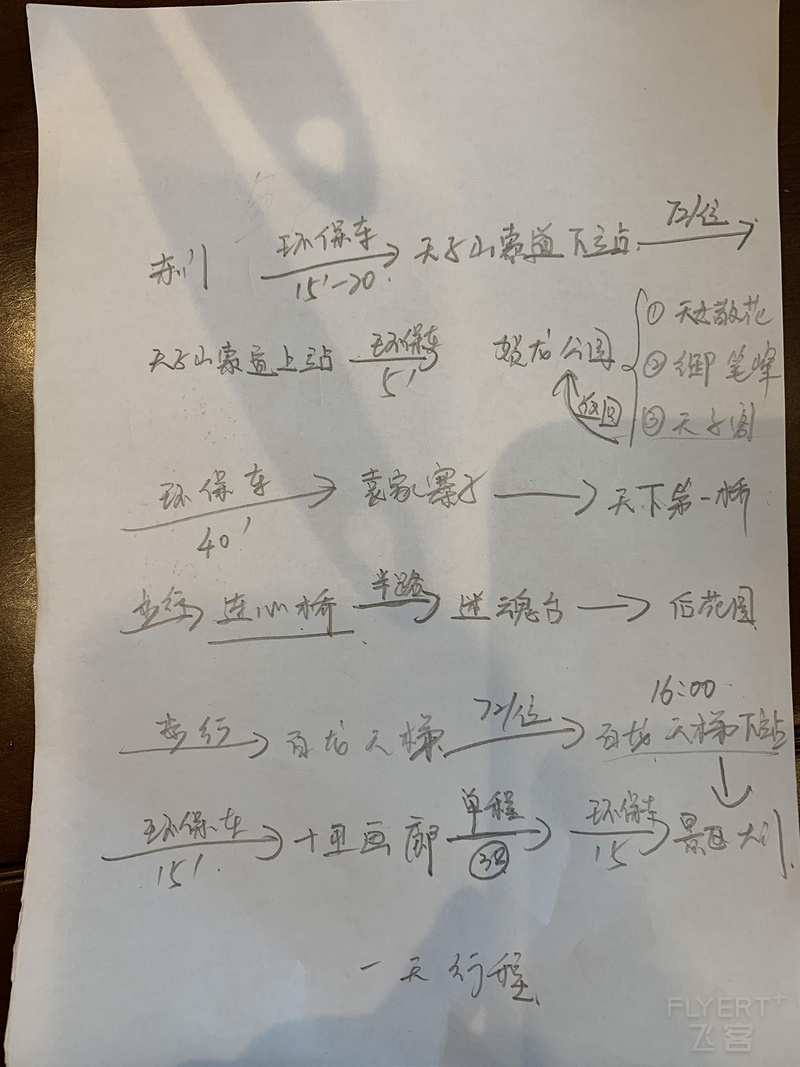 东门 环保车 15'-20 天子山索道下站 72/位
天子山索道上站 环保车 5' 贺龙公园 返回
① 天女散花
② 御笔峰
③ 天子阁
环保车 40' 袁家寨子 天下第一桥
步行 连心桥 半路 迷魂台 后花园
步行 百龙天梯 72/位 16:00 百龙天梯下站
环保车 15' 十里画廊 单程 环保车 15 景区大门
一天行程
FLYERT+
飞客